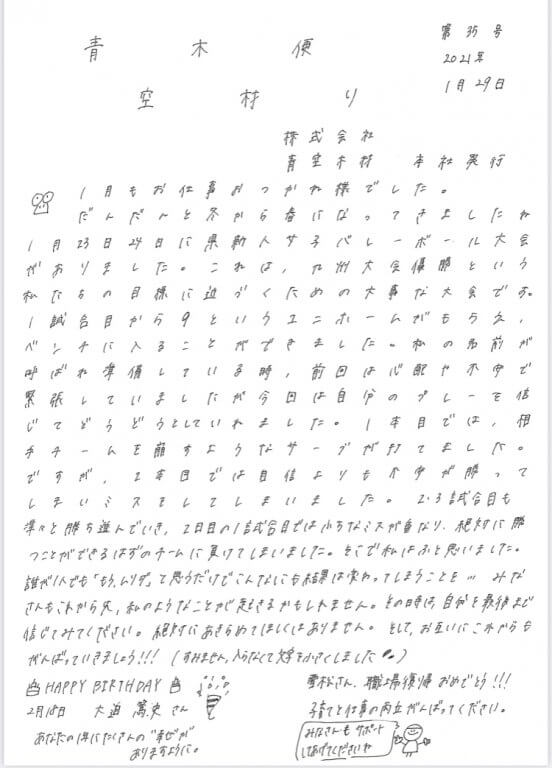 青木便
第35号
2021年
1月29日
空材り
株式会社
青空木材 本社発行
1月もお仕事おつかれ様でした。
だんだんと冬から春になってきましたね
1月23日24日に県新人女子バレーボール大会
がありました。これは、九州大会優勝という
私たちの目標に近づくための大事な大会です。
1試合目から9というユニホームがもらえ、
ベンチに入ることができました。私の名前が
呼ばれ準備している時、前回は心配や不安で
緊張していましたが今回は自分のプレーを信
じてどうどうとしていれました。1本目では、相
手チームを崩すようなサーブが打てました。
ですが、2本目では自信よりも不安が勝って
しまいミスをしてしまいました。2・3試合目も
準々と勝ち進んでいき、2日目の1試合目では小さなミスが重なり、絶対に勝
つことができるはずのチームに負けてしまいました。そこで私はふと思いました。
誰か1人でも「もう、ムリだ」って思うだけでこんなにも結果は変わってしまうことを… みな
さんもこれから先、私のようなことが起きるかもしれません。その時は、自分を最後まで
信じてみてください。絶対にあきらめてほしくはありません。そして、お互いにこれからも
がんばっていきましょう!!! (すみません、入らなくて文字小さくしました)
HAPPY BIRTHDAY
2月18日 大迫 篤史 さん
あなたの1年にたくさんの"幸せ"が
ありますように。
雪松さん、職場復帰おめでとう!!!
子育てと仕事の両立がんばってください。
みなさんも サポート
してあげてくださいね